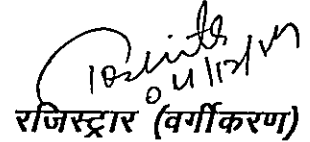 04/12/19
रजिस्ट्रार (वर्गीकरण)